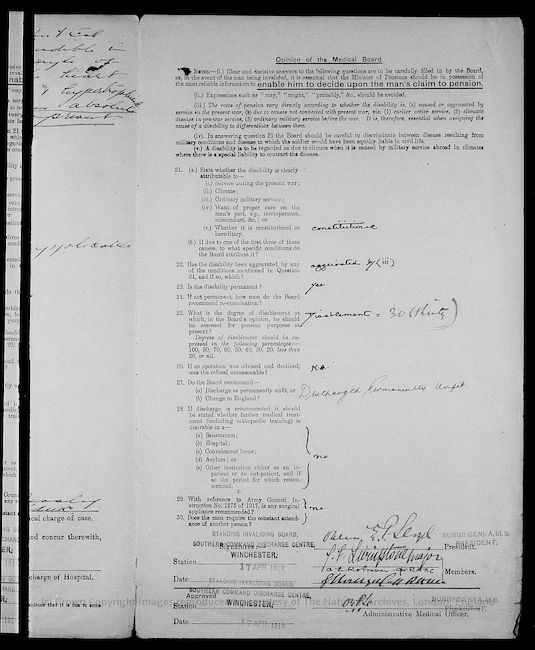 absolute
present
ical charge of case.
nd concur therewith,
charge of Hospital.
Opinion of the Medical Board.
NOTES.—(i.) Clear and decisive answers to the following questions are to be carefully filled in by the Board,
as, in the event of the man being invalided, it is essential that the Minister of Pensions should be in possession of
the most reliable information to enable him to decide upon the man's claim to pension.
(ii.) Expressions such as "may," "might," "probably," &c., should be avoided.
(iii.) The rates of pension vary directly according to whether the disability is, (1) caused or aggravated by
service in the present war, (2) due to causes not connected with present war, viz. (1) earlier active service, (2) climatic
disease in pre-war service, (3) ordinary military service before the war. It is, therefore, essential when assigning the
cause of a disability to differentiate between them.
(iv.) In answering question 21 the Board should be careful to discriminate between disease resulting from
military conditions and disease to which the soldier would have been equally liable in civil life.
(v.) A disability is to be regarded as due to climate when it is caused by military service abroad in climates
where there is a special liability to contract the disease.
21. (a) State whether the disability is clearly
attributable to—
(i.) Service during the present war;
(ii.) Climate;
(iii.) Ordinary military service;
(iv.) Want of proper care on the
man's part, e.g., intemperance,
misconduct, &c.; or
(v.) Whether it is constitutional or
hereditary.
constitutional
(b) If due to one of the first three of these
causes, to what specific conditions do
the Board attribute it?
22. Has the disability been aggravated by any
of the conditions mentioned in Question
21; and if so, which?
aggravated by (iii)
23. Is the disability permanent?
yes
24. If not permanent, how soon do the Board
recommend re-examination?
25. What is the degree of disablement at
which, in the Board's opinion, he should
be assessed for pension purposes at
present?
Disablement = 30 (thirty)
Degrees of disablement should be expressed
in the following percentages—
100, 80, 70, 60, 50, 40, 30, 20, less than
20, or nil.
26. If an operation was advised and declined,
was the refusal unreasonable?
N.A.
27. Do the Board recommend—
(a) Discharge as permanently unfit, or
(b) Change to England?
Discharged Permanently Unfit
28. If discharge is recommended it should
be stated whether further medical treatment
(including orthopædic training) is
desirable in a—
(a) Sanatorium;
(b) Hospital;
(c) Convalescent home;
(d) Asylum; or
(e) Other institution either as an in-
patient or an out-patient, and if
so the period for which recommended.
no
29. With reference to Army Council Instruction
No. 1275 of 1917, is any surgical
appliance recommended?
30. Does the man require the constant attendance
of another person?
no
STANDING INVALIDING BOARD,
SOUTHERN COMMAND DISCHARGE CENTRE,
Signatures:—
WINCHESTER,
Station
17 APR 1918
Date
SURG: GENL: A.M.S.
PRESIDENT.
President.
Livingstone Major
Members.
STANDING INVALIDING BOARD,
SOUTHERN COMMAND DISCHARGE CENTRE,
Approved
WINCHESTER,
Station
17 APR 1918
Date
SURG: GENL: A.M.S.
PRESIDENT.
Administrative Medical Officer.
(c) Crown Copyright Images reproduced by courtesy of The National Archives, London, England